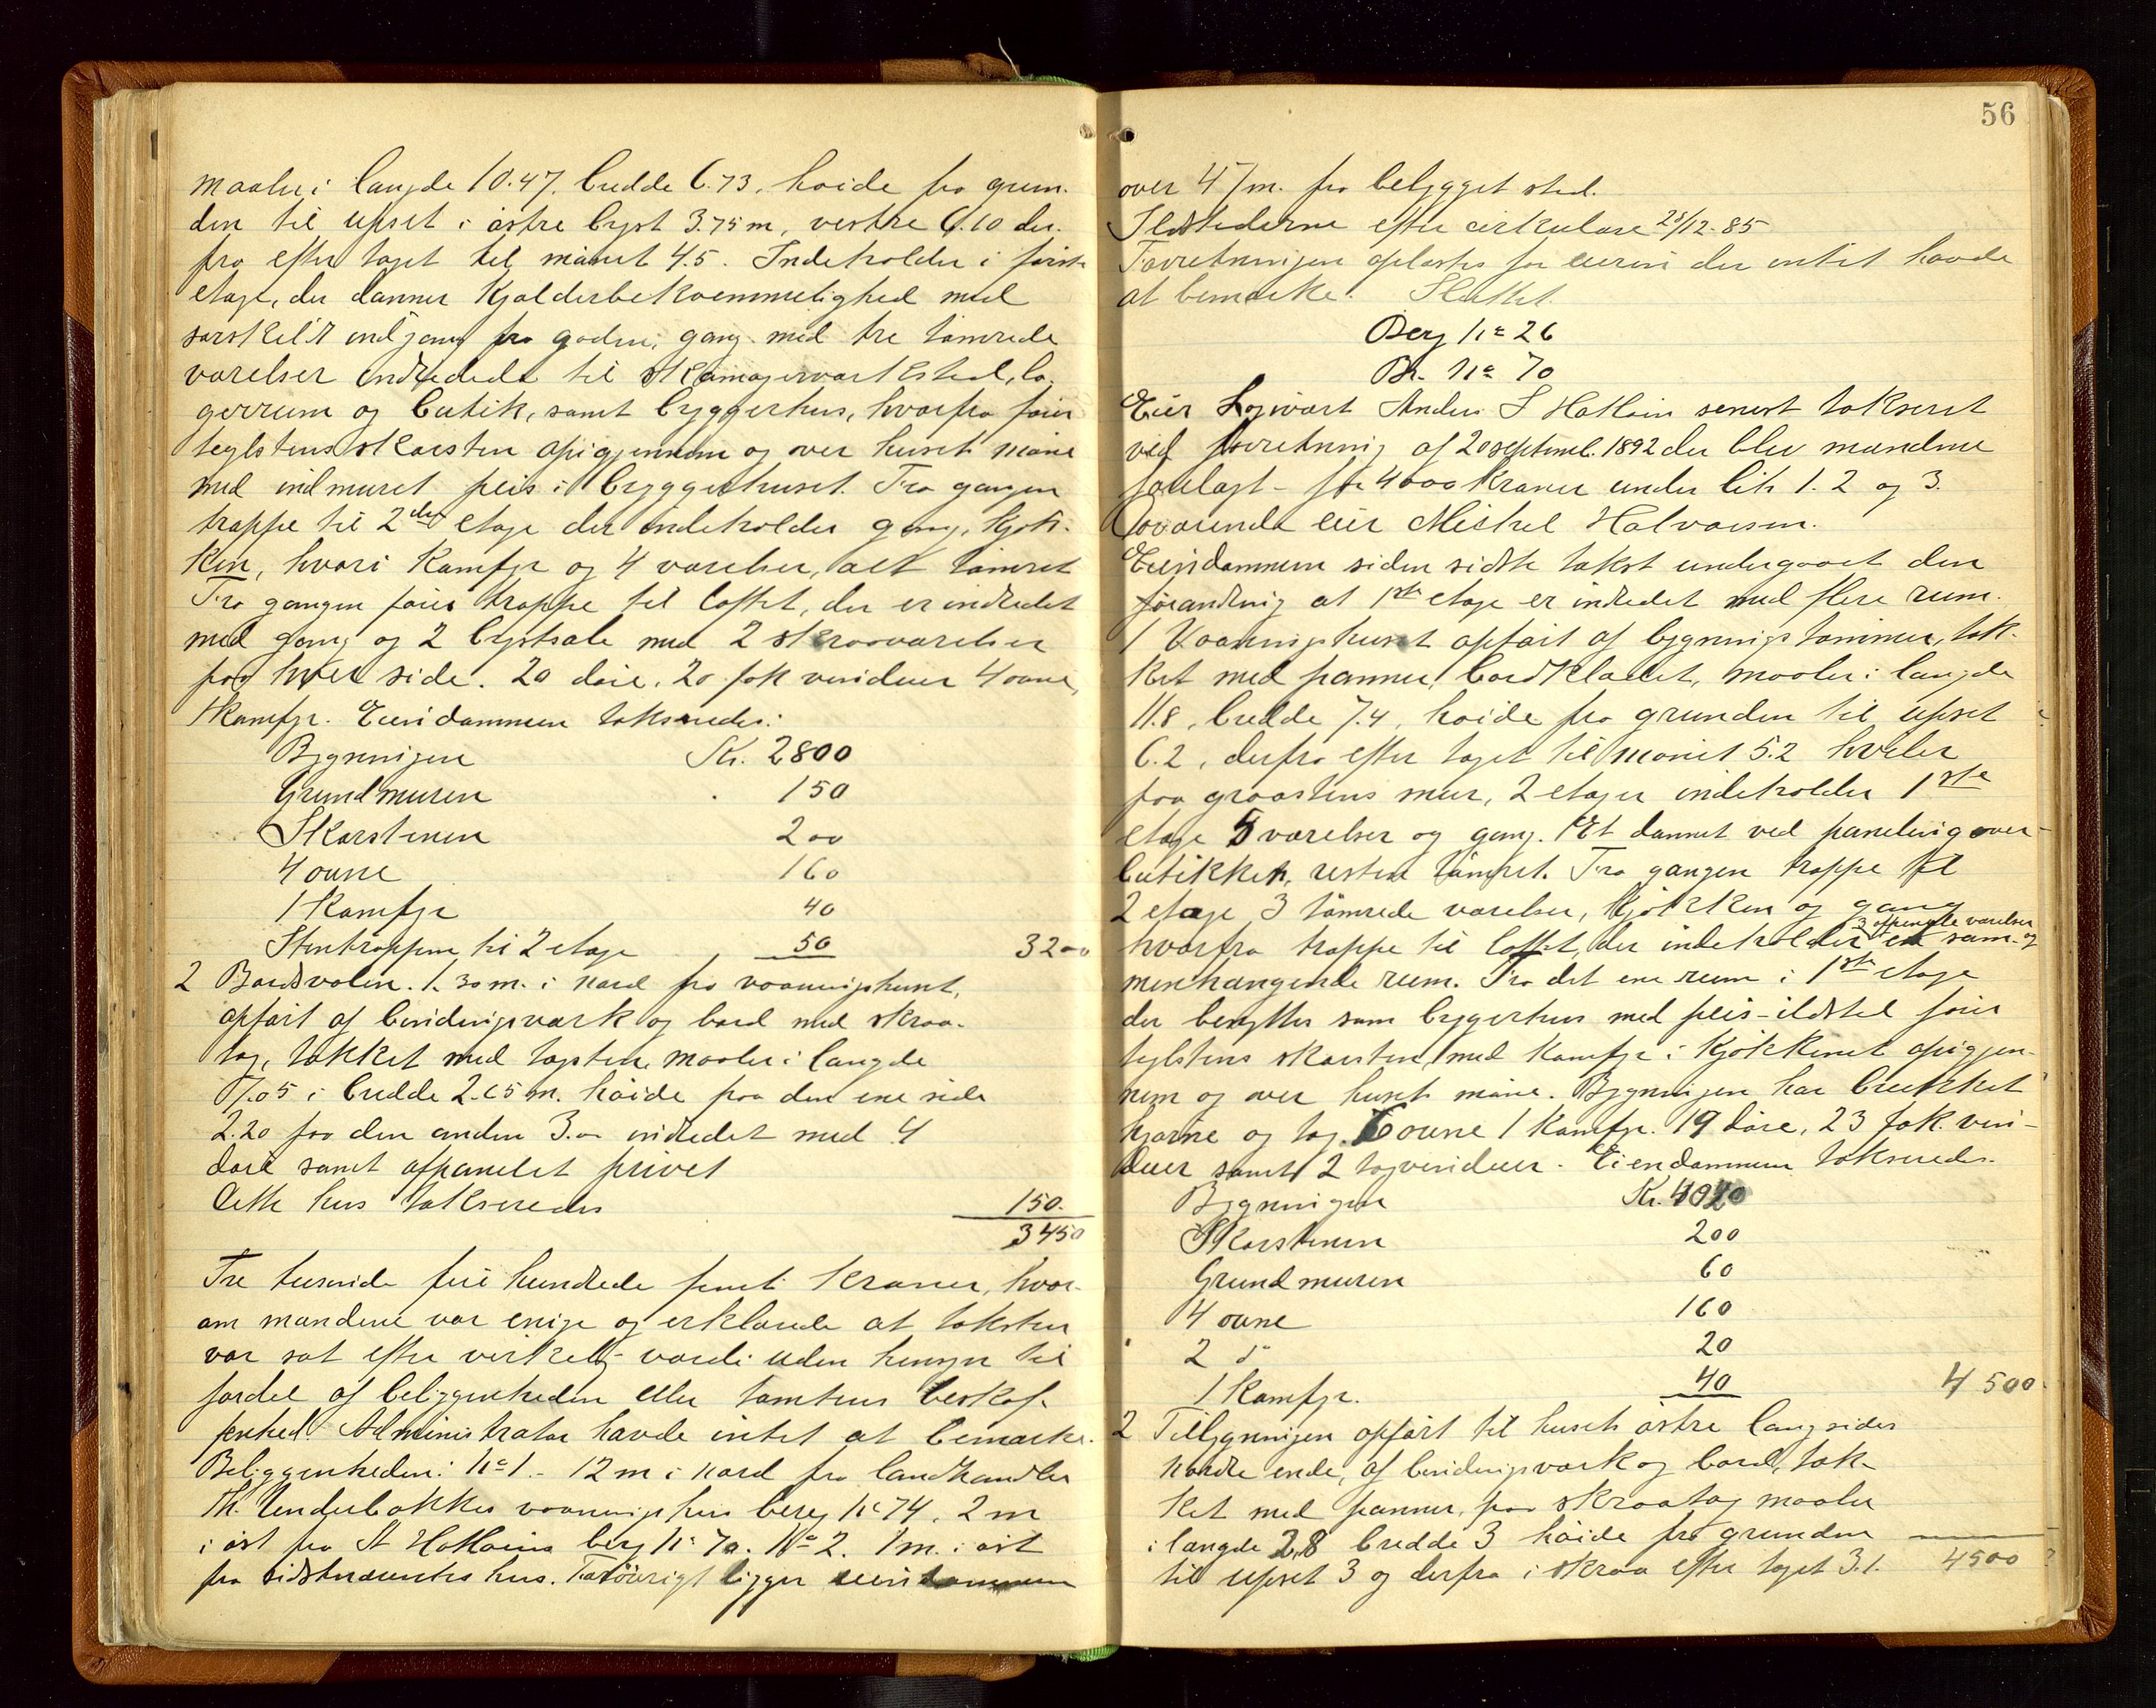 maaler i længde 10.47. bredde 6.73. høide fra grun-
den til upset i østre byst 3.75 m, vestre 6.10 der-
fra efter taget til mønet 4.5. Indeholder i første
etage, der danner Kjælderbekvæmmelighed med
særskilt indgang fra gaden, gang med tre tømrede
værelser indredede til Skomagerværksted, la-
gerrum og butik, samt bryggerhus, hvorfra fører
teglstens skorsten opigjennem og over husets møne
med indmuret peis i bryggerhuset. Fra gangen
trappe til 2den etage der indeholder gang, kjøk-
ken, hvori Komfyr og 4 værelser, alt tømret
Fra gangen fører trappe til loftet, der er indredet
med gang og 2 bystsale med 2 skraaværelser
paa hver side. 20 døre, 20 fak vinduer 4 ovne,
1 Komfyr. Eiendommen takseredes:
Bygningen Kr. 2800
Grundmuren 150
Skorstenen 200
4 ovne 160
1 Komfyr 40
Stentrappen til 2 etage 50 3200
2 Bordsvalen. 1.30 m. i nord fra vaaningshuset,
opført af bindingsværk og bord med skraa-
tag, tækket med tagsten, maaler i længde
7.05 i bredde 2.65 m. høide paa den ene side
2.20 paa den anden 3.00 indredet med 4
døre samt afpanelet privet
Dette hus takseredes 150.
3450
Tre tusinde fire hundrede femti Kroner, hvor-
om mændene var enige og erklærede at taksten
var sat efter virkelig værdi uden hensyn til
fordel af beliggenheden eller tomtens beskaf-
fenhed. Administrator havde intet at bemærke.
Beliggenheden: No 1. - 12 m i nord fra landhandler
Th. Underbakkes vaaningshus bereg No 74. 2 m
i øst fra A Hotleins berg No 70. No 2. 1 m. i øst
fra sidstnævntes hus. Forøvrigt ligger eiendommen
56
over 47 m. fra bebygget sted.
Ildstederne efter cirkulære 23/12-85
Forretningen oplæstes for eieren der intet havde
at bemærke. Sluttet.
Berg No 26
Br. No 70
Eier Anders S Hotlein senest takseret
ved forretning af 20 septemb. 1892 der blev mændene
forelagt - for 4000 Kroner under lit. 1. 2 og 3.
Daværende eier Mikkel Halvorsen.
Eiendommen siden sidste takst undergaaet den
forandring at 1ste etage er indredet med flere rum.
1 Vaaningshuset opført af bygningstømmer, tæk-
ket med panner, bordklædet, maaler i længde
11.8, bredde 7.4, høide fra grunden til upset
6.2, derfra efter taget til mønet 5.2 hviler
paa graastens mur, 2 etager indeholder 1ste
etage 5 værelser og gang. 1 Et dannet ved paneling over
butikken, resten tømret. Fra gangen trappe til
2 etage, 3 tømrede værelser, kjøkken og gang
hvorfra trappe til loftet, der indeholder 3 afpanelte værelser og et sam-
menhængende rum. Fra det ene rum i 1ste etage
der benyttes som bryggerhus med peis-ildsted fører
teglstens skorsten, med Komfyr i Kjøkkenet opigjen-
nem og over husets møne. Bygningen har brækket
hjørne og tag. 6 ovne 1 Komfyr. 19 døre, 23 fak. vin-
duer samt 2 tagvinduer. Eiendommen takseredes
Bygningen Kr. 4020
Skorstenen 200
Grundmuren 60
4 ovne 160
2 do 20
1 Komfyr. 40 4500
2 Tilbygningen opført til husets østre langsides
nordre ende, af bindingsværk og bord, tæk-
ket med panner, paa skraatag maaler
i længde 2,8 bredde 3 høide fra grunden
til upset 3 og derfra i skraa efter taget 3.1. 4500